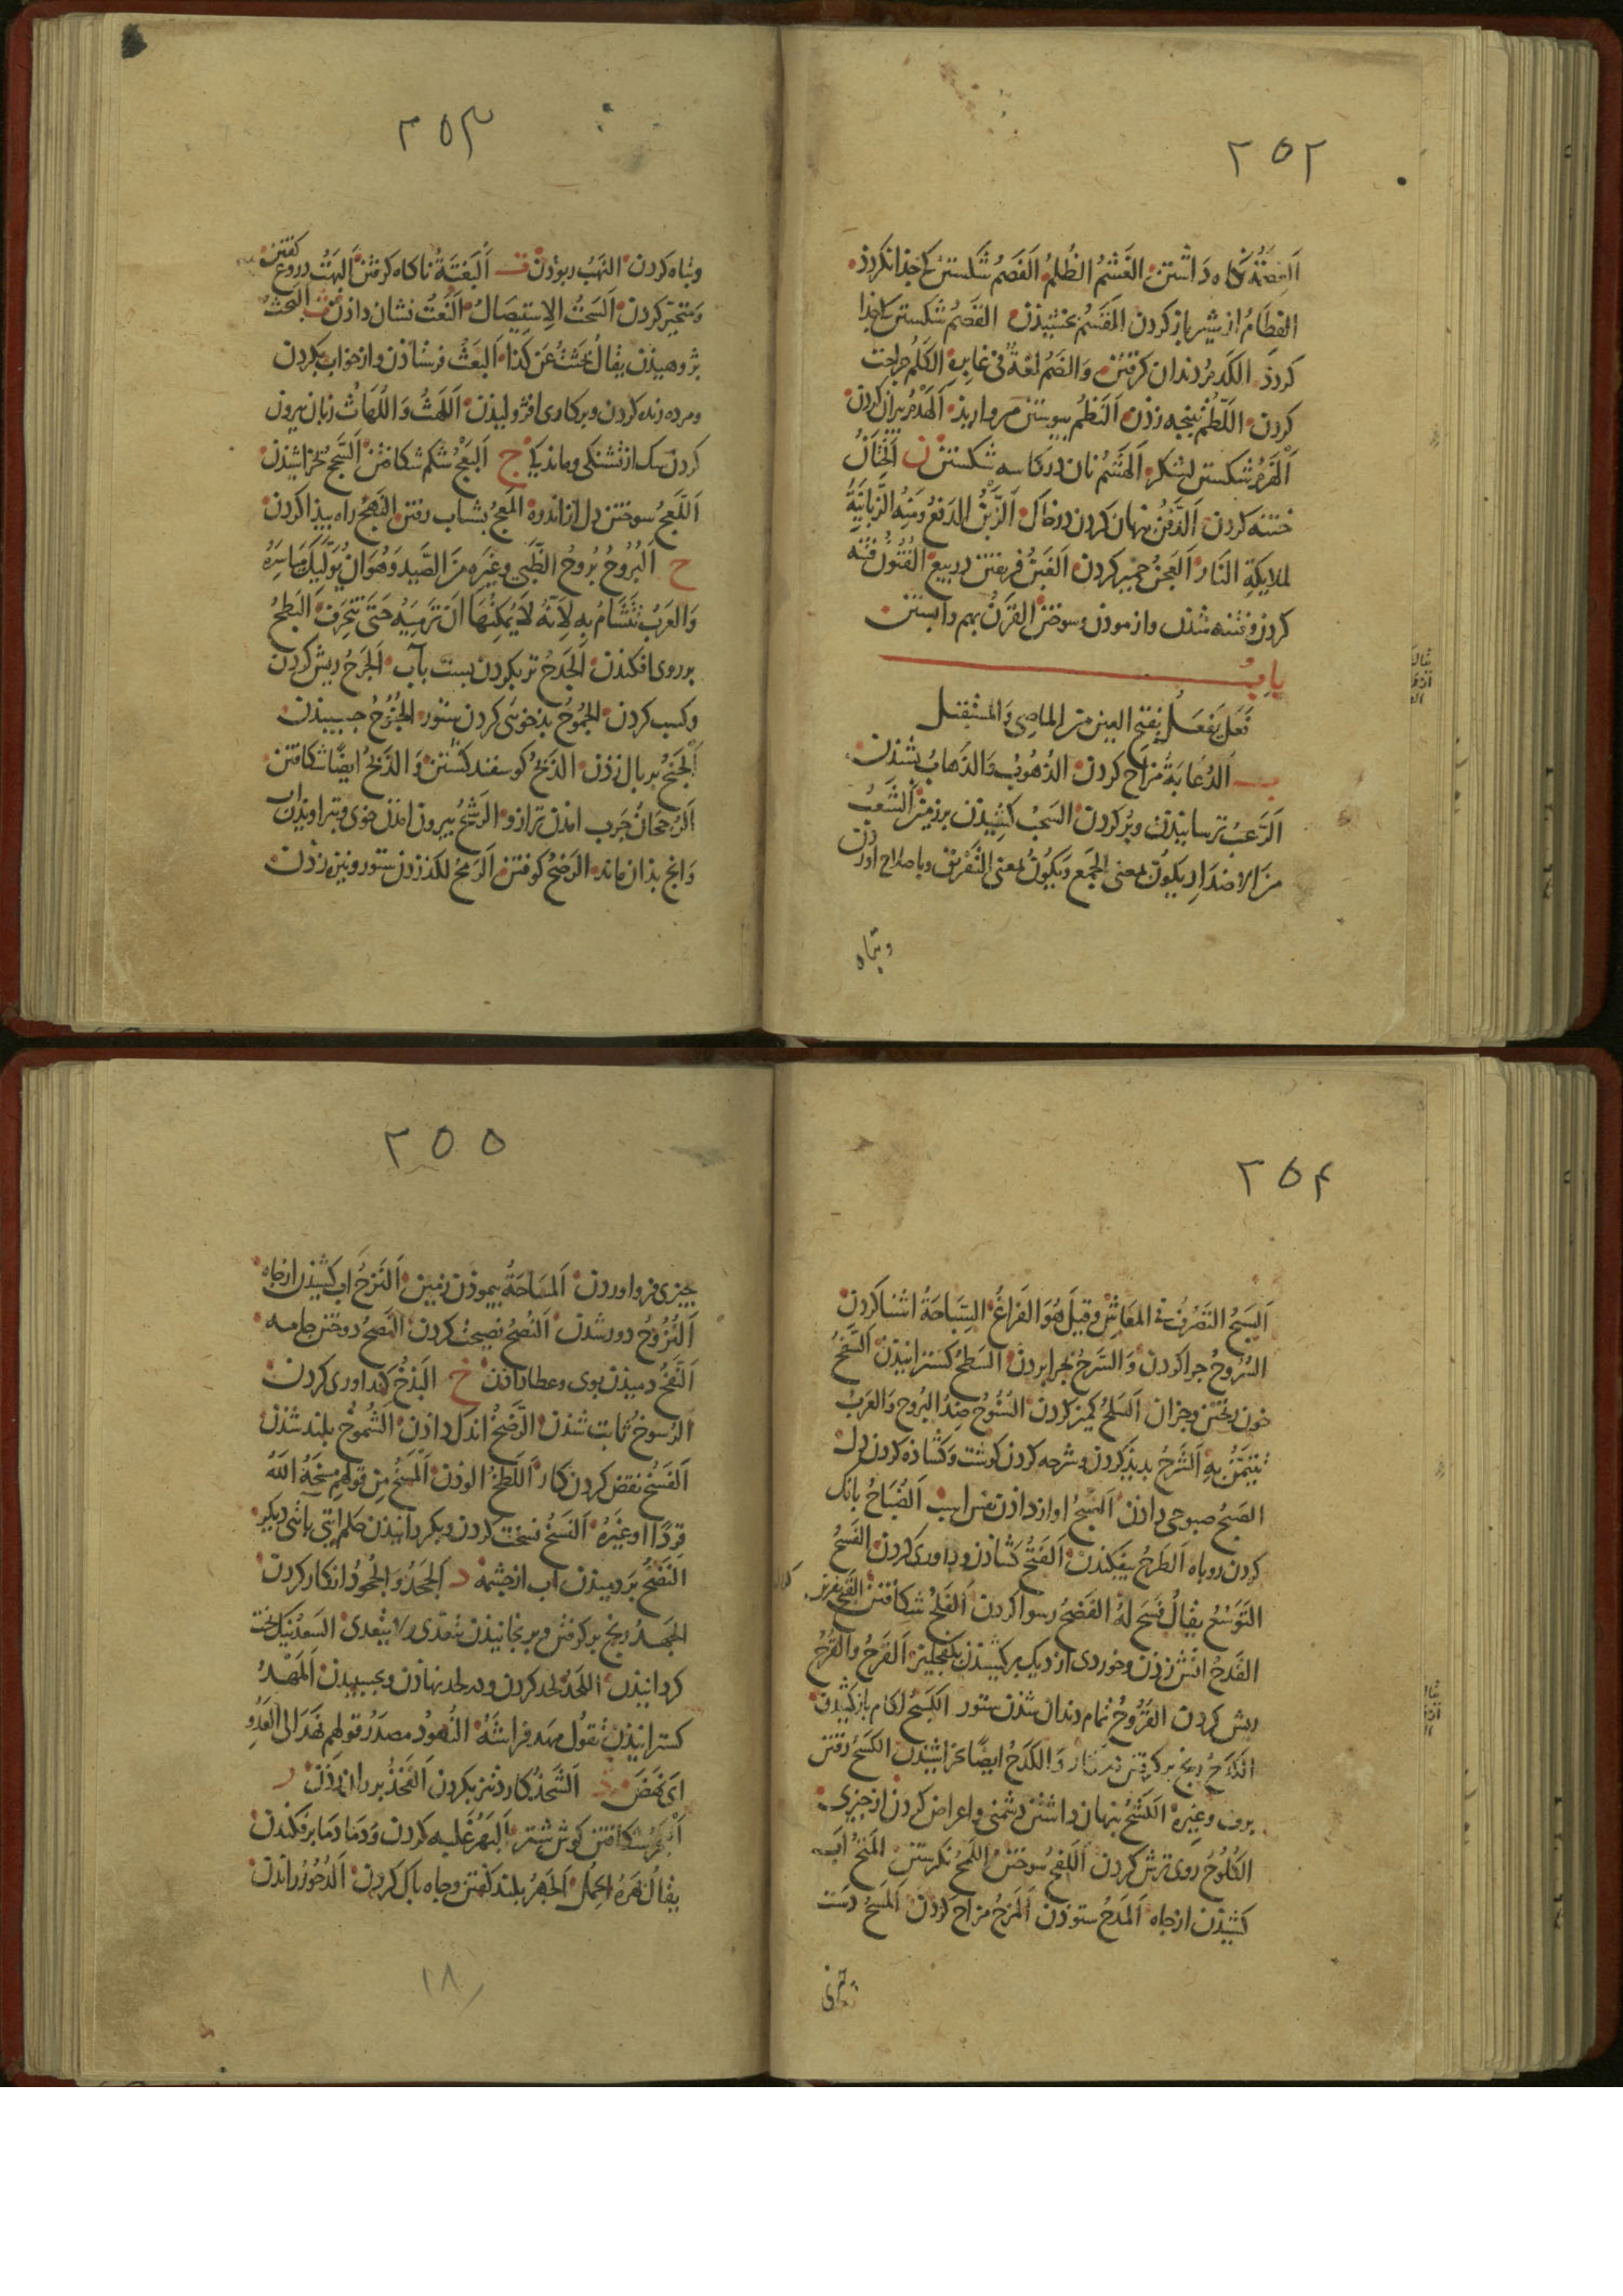 ۲۵۲
العصمة نگاه داشتن الغَشْمُ الظُلمُ الفَصْمُ شکستن کی جذا نکردذ
الفطامُ از شیر باز کردن القَسْمُ بخشیذن القَصْمُ شکستن کی جذا
کردذ الکدم دندان کرفتن وَالضَم لغةٌ فی غابره الکَلْمُ جراحت
کردن اللَّطْمُ پنجه زذن اَلنَظمُ بپیوستن مروارید اَلهَدْمُ بیران کردن
اَلْهَزمُ شکستن لشکر اَلهَشْمُ نان در کاسه شکستن ن اَلخِتَانُ
ختنه کردن اَلدَّفْنُ پنهان کردن در خاک اَلزَّبْنُ الدَفعُ وَمِنهُ الزَّبَانِیَةُ
لملایکةِ النَار اَلعَجنُ خمیر کردن اَلغَبنُ فریفتن در بیع الفُتُونُ فتنه
کردن و فتنه شذن وازمودن وسوختن القَرْنُ بهم وابستن
بابُ
فَعَلَ یَفعَلُ بِفتح العین من الماضی وَالمستقبل
ب اَلدُعَابَةُ مُزاح کردن الذُهُوبُ وَالذَهابُ بشذن
اَلرَعبُ ترسانیدن وپر کردن السَحبُ کشیدن بر زمین اَلشَعبُ
مِنَ الاضدَادِ یکونُ بمعنی الجَمعِ وَیکونُ بمعنی التَفریق وباصلاح اوردن
وتباه
۲۵۳
وتباه کردن النَهْبُ ربوذن ت اَلبَغتَةُ ناکاه کرفتن البَهتُ دروغ کفتن
وَمتحیّر کردن اَلسَحتُ الاِستِیصَالُ اَلنَّعتُ نشان داذن ث البَحثُ
بژوهیذن یقالُ بَحَثتُ عَن کذا اَلبَعثُ فرستاذن واز خواب بکردن
ومرده زنده کردن وبر کاری افژولیذن اَللَهثُ وَاللُهَاثُ زبان بیرون
کردن سک از تشنکی وماندکی ج اَلبَعجُ شکم شکافتن اَلسَّحجُ بخراشیذن
اَللَّعجُ سوختن دل از اندوه المَعجُ بشتاب رفتن النَهجُ راه پیذا کردن
ح اَلبُرُوحُ بُرُوحُ الظَبیِ وغَیرِه مِنَ الصَّیدِ وَهُوَ اَن یُوَلِّیَکَ مَیَاسِرَهُ
وَالعَربُ تَتَشَامُ بِهِ لِاَنّهُ لا یُمکِنُهَا اَن تَرمِیَهُ حَتّی تَنحَرِفَ اَلبَطحُ
بر روی افکندن اَلجَدحُ تر بکردن بست بآب اَلجَرحُ ریش کردن
وکسب کردن الجُمُوحُ بدخوئی کردن ستور الجُنُوحُ جسبیدن
اَلجَنحُ بر بال زذن الذَبحُ کوسفند کشتن وَالذَبحُ ایضًا شکافتن
اَلرُجحَانُ چرب امذن ترازو الرَشحُ بیرون امذن خوی وتراویذن اب
وانچ بذان ماند الرَضحُ کوفتن اَلرَمحُ لکد زدن ستور ونیزه زذن
۲۵۴
اَلسَبحُ التَصَرُف فی المَعَاشِ وقیلَ هُوَ الفَراغُ السِّبَاحَةُ اشنا کردن
السُرُوحُ چرا کردن وَالسَرحُ بچرا بردن السَطحُ کسترانیذن السَفحُ
خون ریختن وجزان اَلسَلحُ کمیز کردن السُنُوحُ ضِدُ البُرُوح وَالعَربُ
تَتَیَمَّنُ بِهِ اَلشَرحُ پدیذ کردن وشرحه کردن کوشت وکشاذه کردن دل
الصَبحُ صبوحی داذن اَلضَبحُ اواز داذن نفس اسب اَلضُبَاحُ بانک
کردن روباه اَلطَرحُ بیفکندن اَلفَتحُ کشاذن وداوری کردن الفَسحُ
التَوَسُعُ یقالُ فَسَحَ لَهُ الفَضحُ رسوا کردن اَلفَلحُ شکافتن
القَدحُ اتش زدن وخوردی از دیک برکشیدن بکفجلیز اَلقَرحُ والقُرحُ
ریش کردن القُرُوحُ تمام دندان شذن ستور الکَبحُ لکام باز کشیدن
الکَدحُ رنج بر کرفتن در کار وَالکَدحُ ایضًا خراشیذن الکَسحُ رفتن
برف وغیره الکَشحُ پنهان داشتن دشمنی واعراض کردن از چیزی
الکُلُوحُ روی ترش کردن اَللَفحُ سوختن اللَمحُ نکرستن المَتحُ اب
کشیذن از چاه اَلمَدحُ ستوذن اَلمَزحُ مزاح کردن اَلمَسحُ دست
۲۵۵
چیزی فرو اوردن اَلمِسَاحَةُ پیموذن زمین اَلنَزحُ اب کشیدن از چاه
اَلنُزُوحُ دور شدن اَلنُصحُ نصیحت کردن النَصحُ دوختن جامه
اَلنَفحُ دمیذن بوی وعطا داذن خ اَلبَذخُ کنداوری کردن
الرُسوخُ ثابت شذن الرَّضخُ اندک داذن الشُمُوخُ بلند شذن
اَلفَسخُ نقض کردن کار اَللَطخُ الوذن اَلمَسخُ مِن قولِهِم مَسَخَهُ اللّهُ
قِردًا او غَیرَهُ اَلنَسخُ نسخت کردن وبکردانیذن حکم ایتی بایتی دیکر
النَضخُ بَر دمیذن اب از چشمه د اَلجَحدُ وَالجُحودُ انکار کردن
الجَهدُ رنج بر کرفتن وبرنجانیذن یتعَدّی ولا یتعدی السَعدُ نیک بخت
کردانیذن اللَحدُ لحد کردن ودر لحد نهاذن وبجسبیدن المَهْدُ
کسترانیذن تقُولُ مهَدَ فراشَهُ النُهودُ مصدَرُ قولهِم نَهَدَ الی العَدُوِّ
ای نَهَضَ ذ اَلشَحذُ کارد تیز بکردن اَلفَخذُ بر ران زدن ر
اَلبَحرُ شکافتن کوش شتر اَلبَهرُ غلبه کردن وَدمَا دمَا برفکندن
یقالُ بَهَرَهُ الحِملُ اَلجَهرُ بلند کفتن وچاه پاک کردن اَلدُحُورُ راندن
۲۸